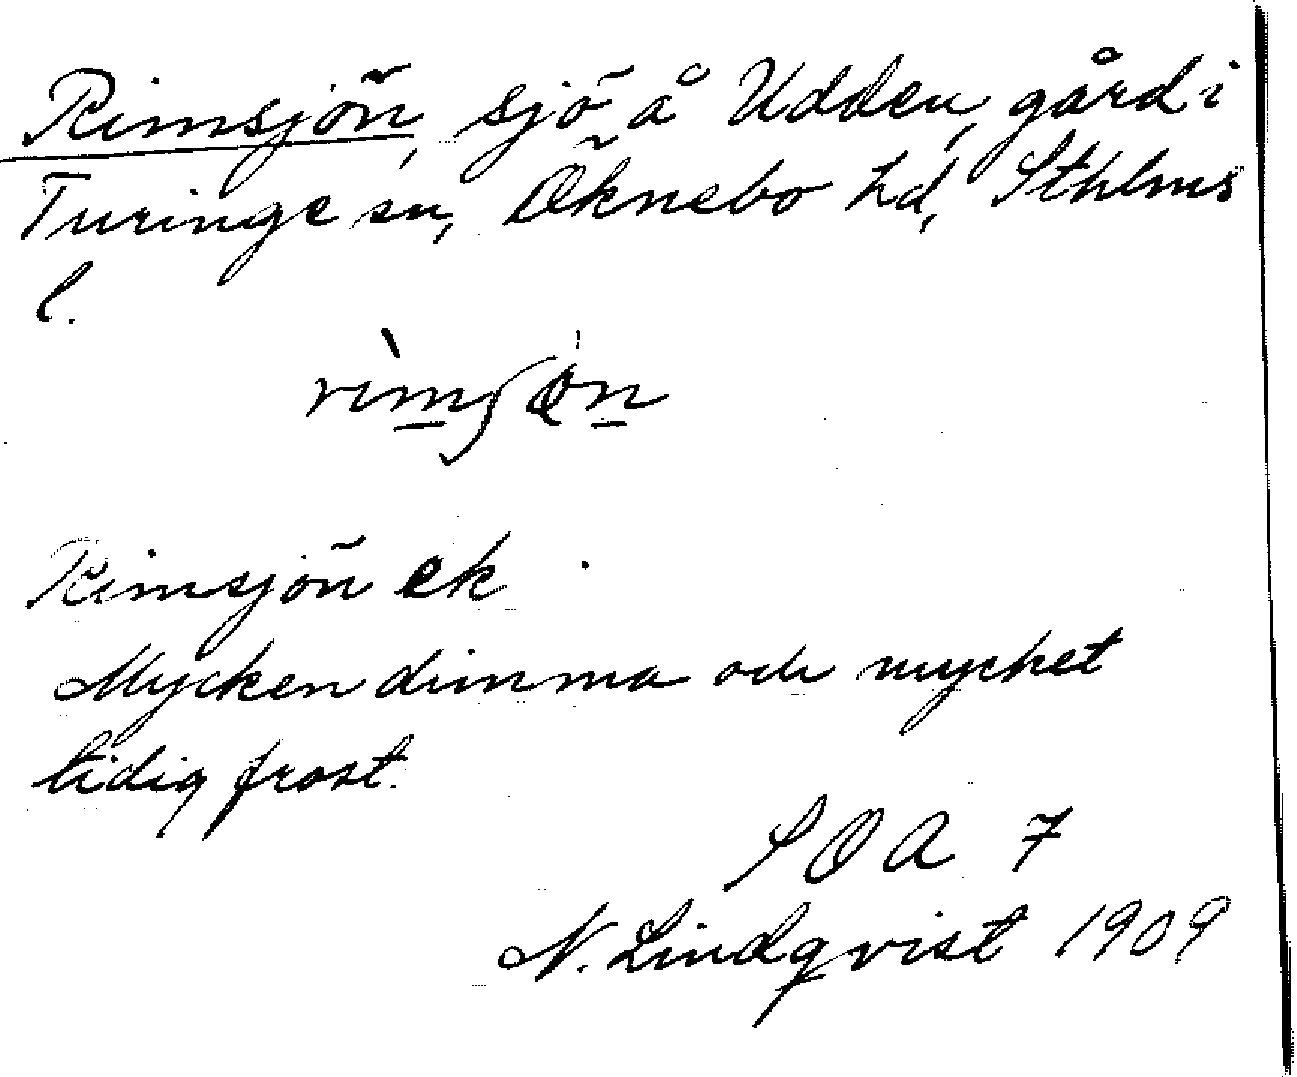 Rimsjön, sjö å Udden, gård i
Turinge sn, Öknebo hd, Sthlms
l.
rìmʃö̀n
Rimsjön ek
Mycken dimma och mycket
tidig frost.
SOA 7
N. Lindqvist 1909